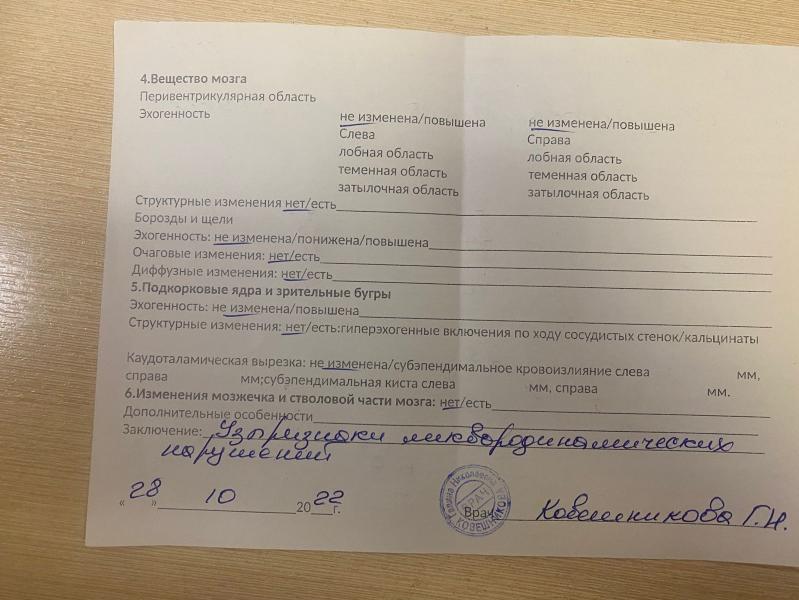 4.Вещество мозга
Перивентрикулярная область
Эхогенность не изменена/повышена не изменена/повышена
Слева Справа
лобная область лобная область
теменная область теменная область
затылочная область затылочная область
Структурные изменения нет/есть
Борозды и щели
Эхогенность: не изменена/понижена/повышена
Очаговые изменения: нет/есть
Диффузные изменения: нет/есть
5.Подкорковые ядра и зрительные бугры
Эхогенность: не изменена/повышена
Структурные изменения: нет/есть:гиперэхогенные включения по ходу сосудистых стенок/кальцинаты
Каудоталамическая вырезка: не изменена/субэпендимальное кровоизлияние слева мм,
справа мм;субэпендимальная киста слева мм, справа мм.
6.Изменения мозжечка и стволовой части мозга: нет/есть
Дополнительные особенности
Заключение: Узы признаки ликвородинамических
нарушений
«28» 10 2022 г. Врач Ковешникова Г.Н.
Галина Николаевна
ВРАЧ
КОВЕШНИКОВА